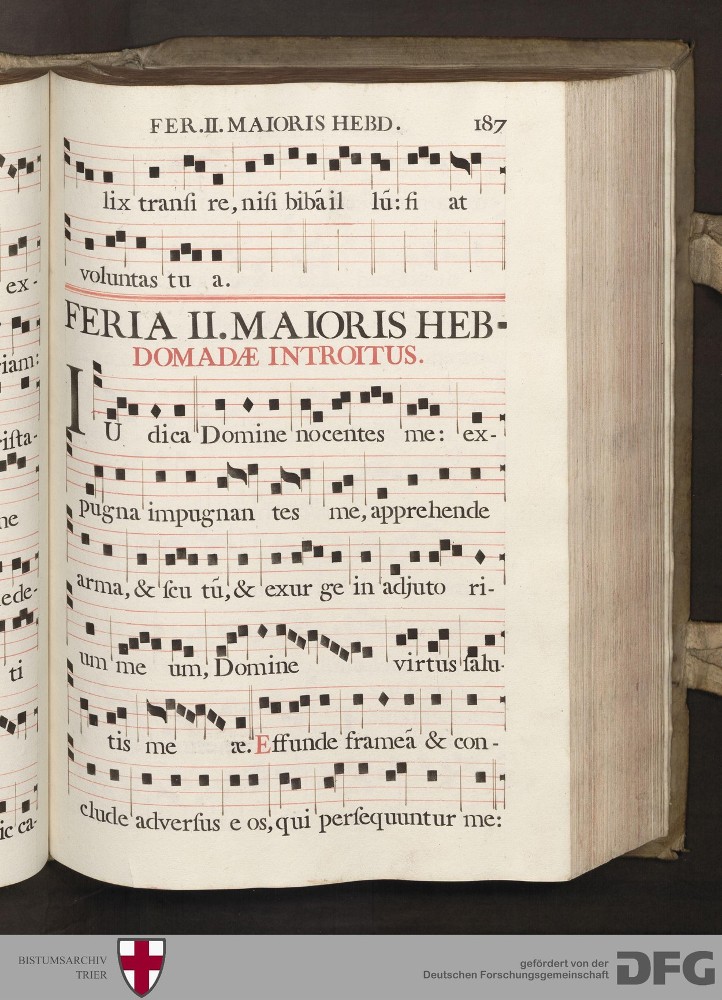 FER.II. MAIORIS HEBD.
187
lix tranſi re, niſi bibãil lũ: fi at
voluntas tu a.
FERIA II. MAIORIS HEB-
DOMADÆ INTROITUS.
IU dica Domine nocentes me: ex-
pugna impugnan tes me, apprehende
arma, & ſcu tũ, & exur ge in adjuto ri-
um me um, Domine virtus ſalu-
tis me æ. Effunde frameã & con-
clude adverſus e os, qui perſequuntur me:
ex-
iam:
iſta-
ne
ede-
ti
ic ca-
BISTUMSARCHIV
TRIER
gefördert von der
Deutschen Forschungsgemeinschaft
DFG